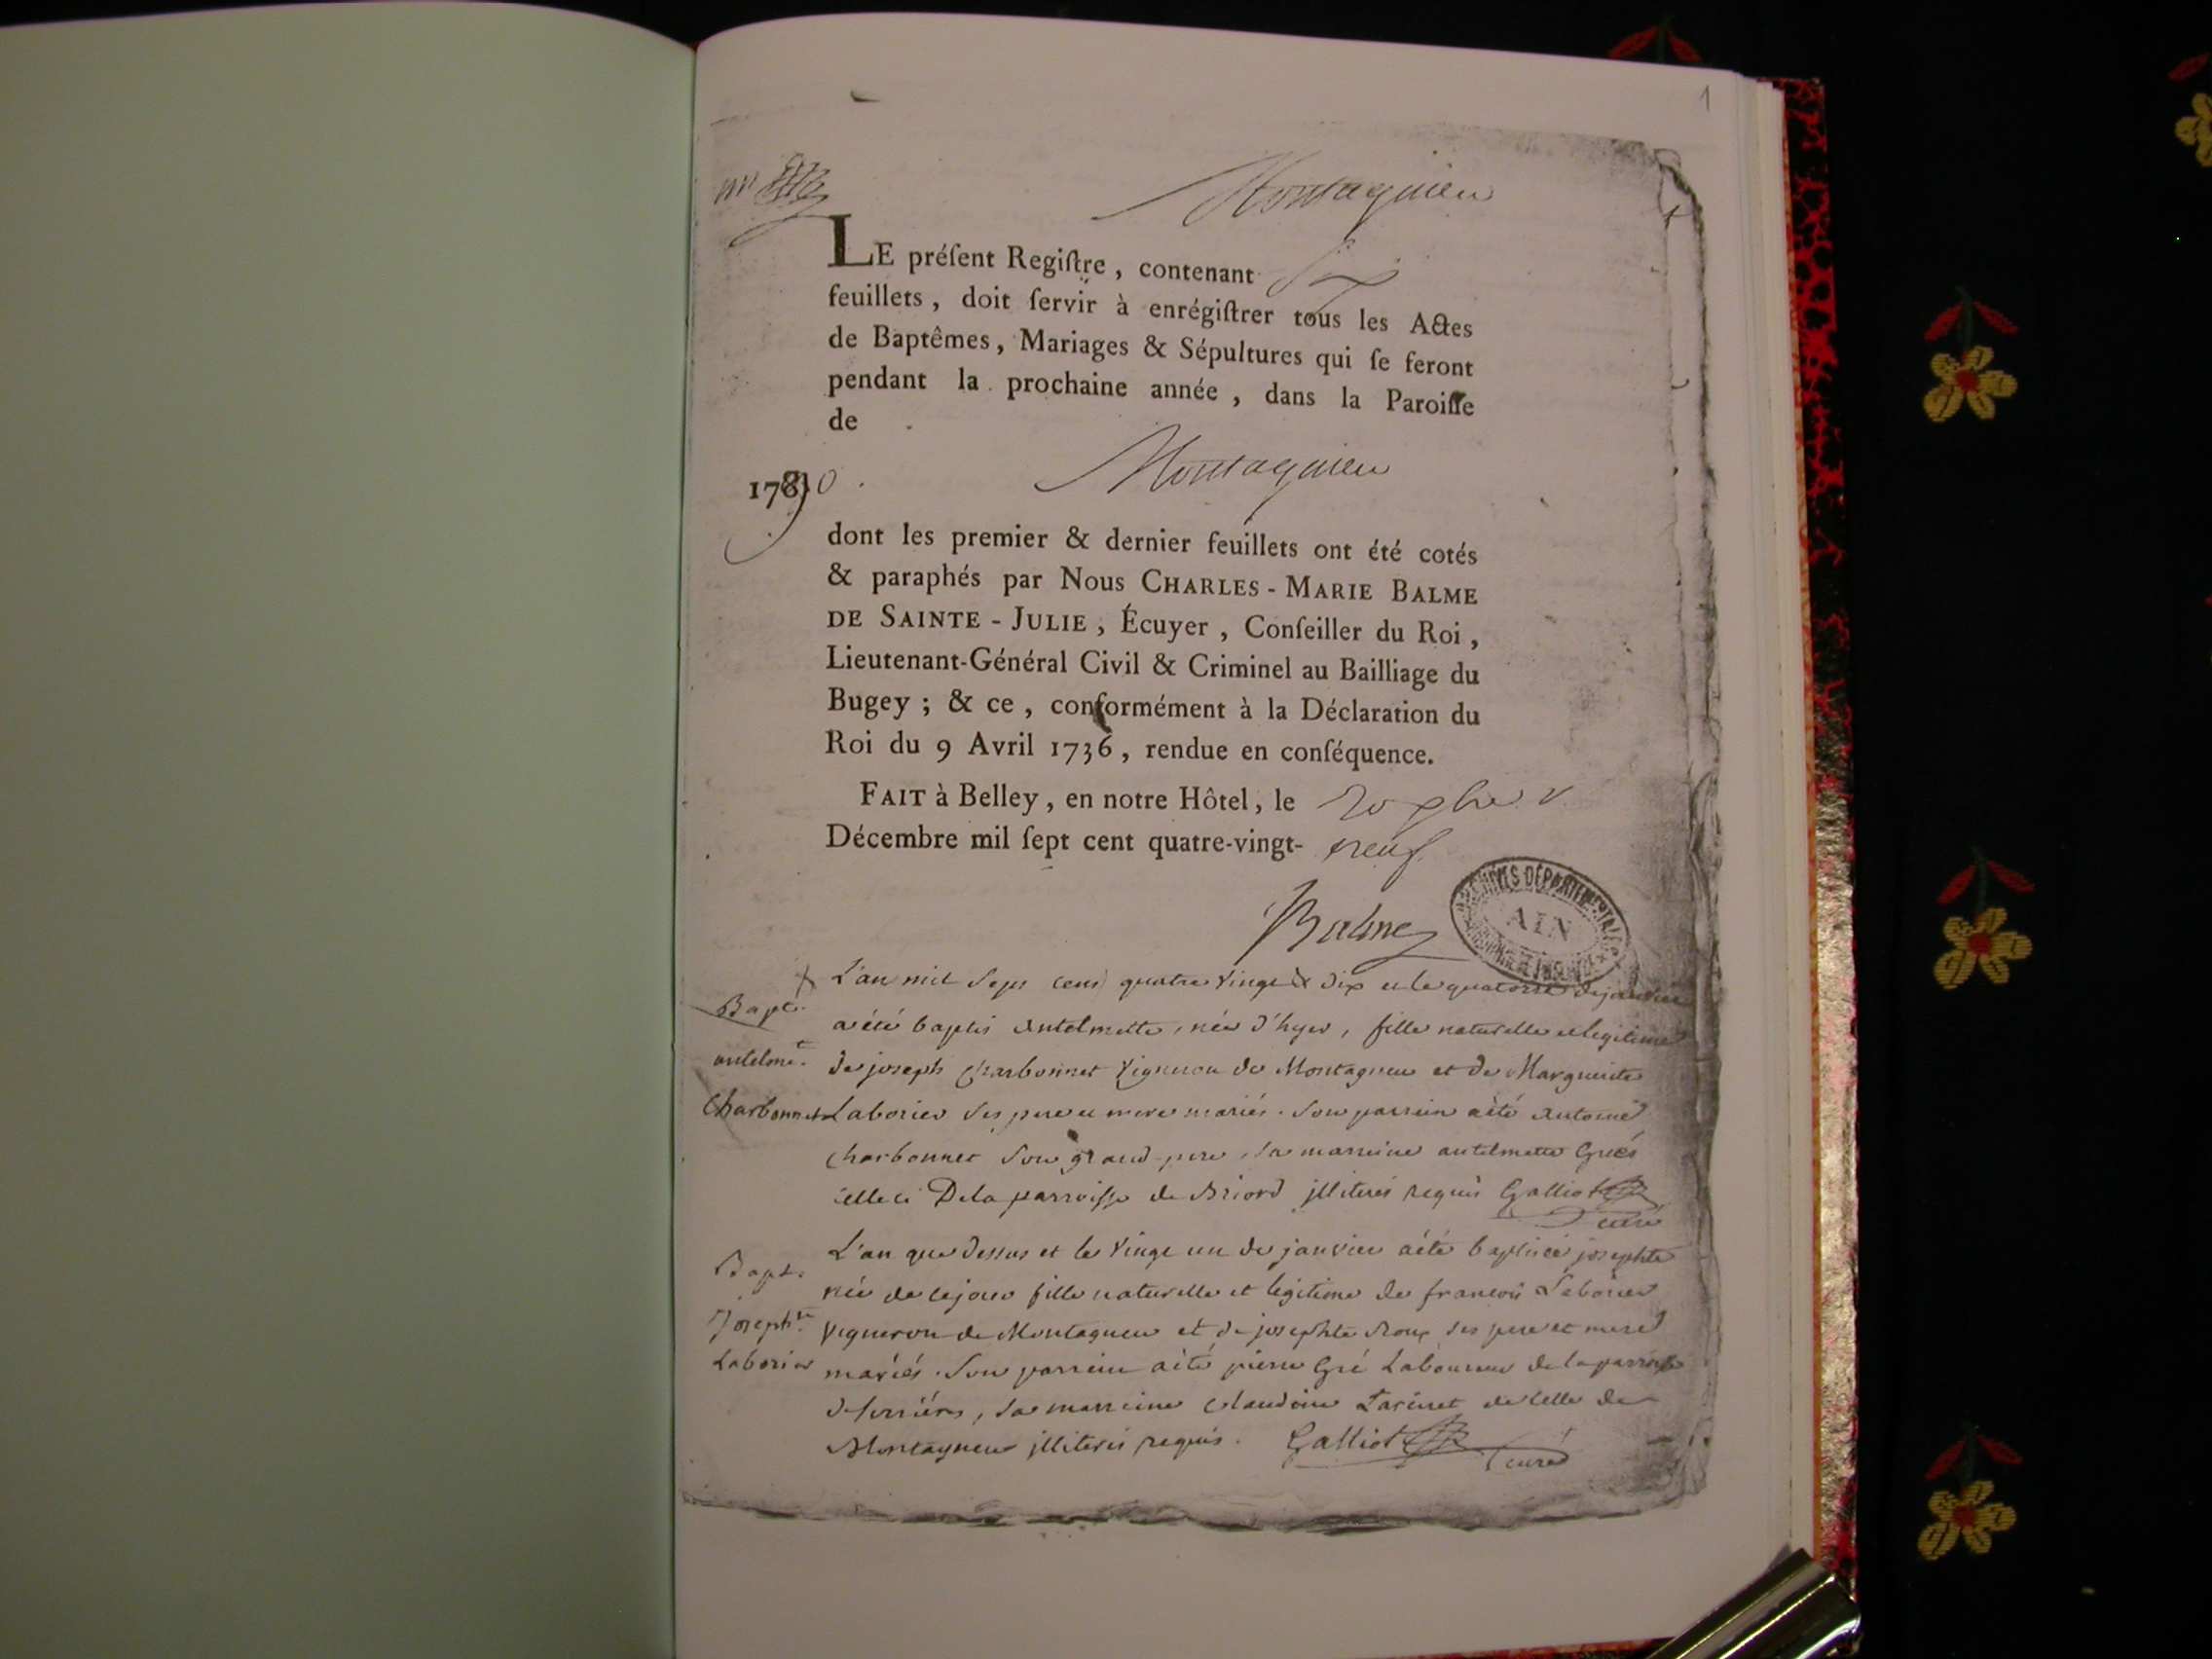 1
Montagnieu
LE préſent Regiſtre, contenant six
feuillets, doit ſervir à enrégiſtrer tous les Actes
de Baptêmes, Mariages & Sépultures qui ſe feront
pendant la prochaine année, dans la Paroiſſe
de
1790. Montagnieu
dont les premier & dernier feuillets ont été cotés
& paraphés par Nous CHARLES-MARIE BALME
DE SAINTE-JULIE, Écuyer, Conſeiller du Roi,
Lieutenant-Général Civil & Criminel au Bailliage du
Bugey; & ce, conformément à la Déclaration du
Roi du 9 Avril 1736, rendue en conſéquence.
FAIT à Belley, en notre Hôtel, le
Décembre mil ſept cent quatre-vingt- neuf
Balme
ARCHIVES DÉPARTEMENTALES
AIN
L'an mil sept cent quatre vingt & dix et le quatorze de janvier
Bapt. a été baptis antelmette, née d'hyer, fille naturelle et legitime
antelme.te de joseph Charbonnet Vigneron de Montagneu et de Marguerite
Charbonnet Laborier ses pere et mere mariés. Son parrein a été antoine
Charbonnet son grand-pere, sa marreine antelmette Grés
celle ci De la parroisse de Briord illiterés requis Galliot
curé
L'an que dessus et le vingt un de janvier a été baptisée josephte
Bapt. née de ce jour fille naturelle et legitime de francois Laborier
Joseph.te vigneron de Montagneu et de josephte Roux ses pere et mere
Laborier mariés. Son parrein a été pierre Gré Laboureur de la parroisse
de serriéres, sa marreine claudine Tarinet de celle de
Montagneu illiterés requis. Galliot
curé